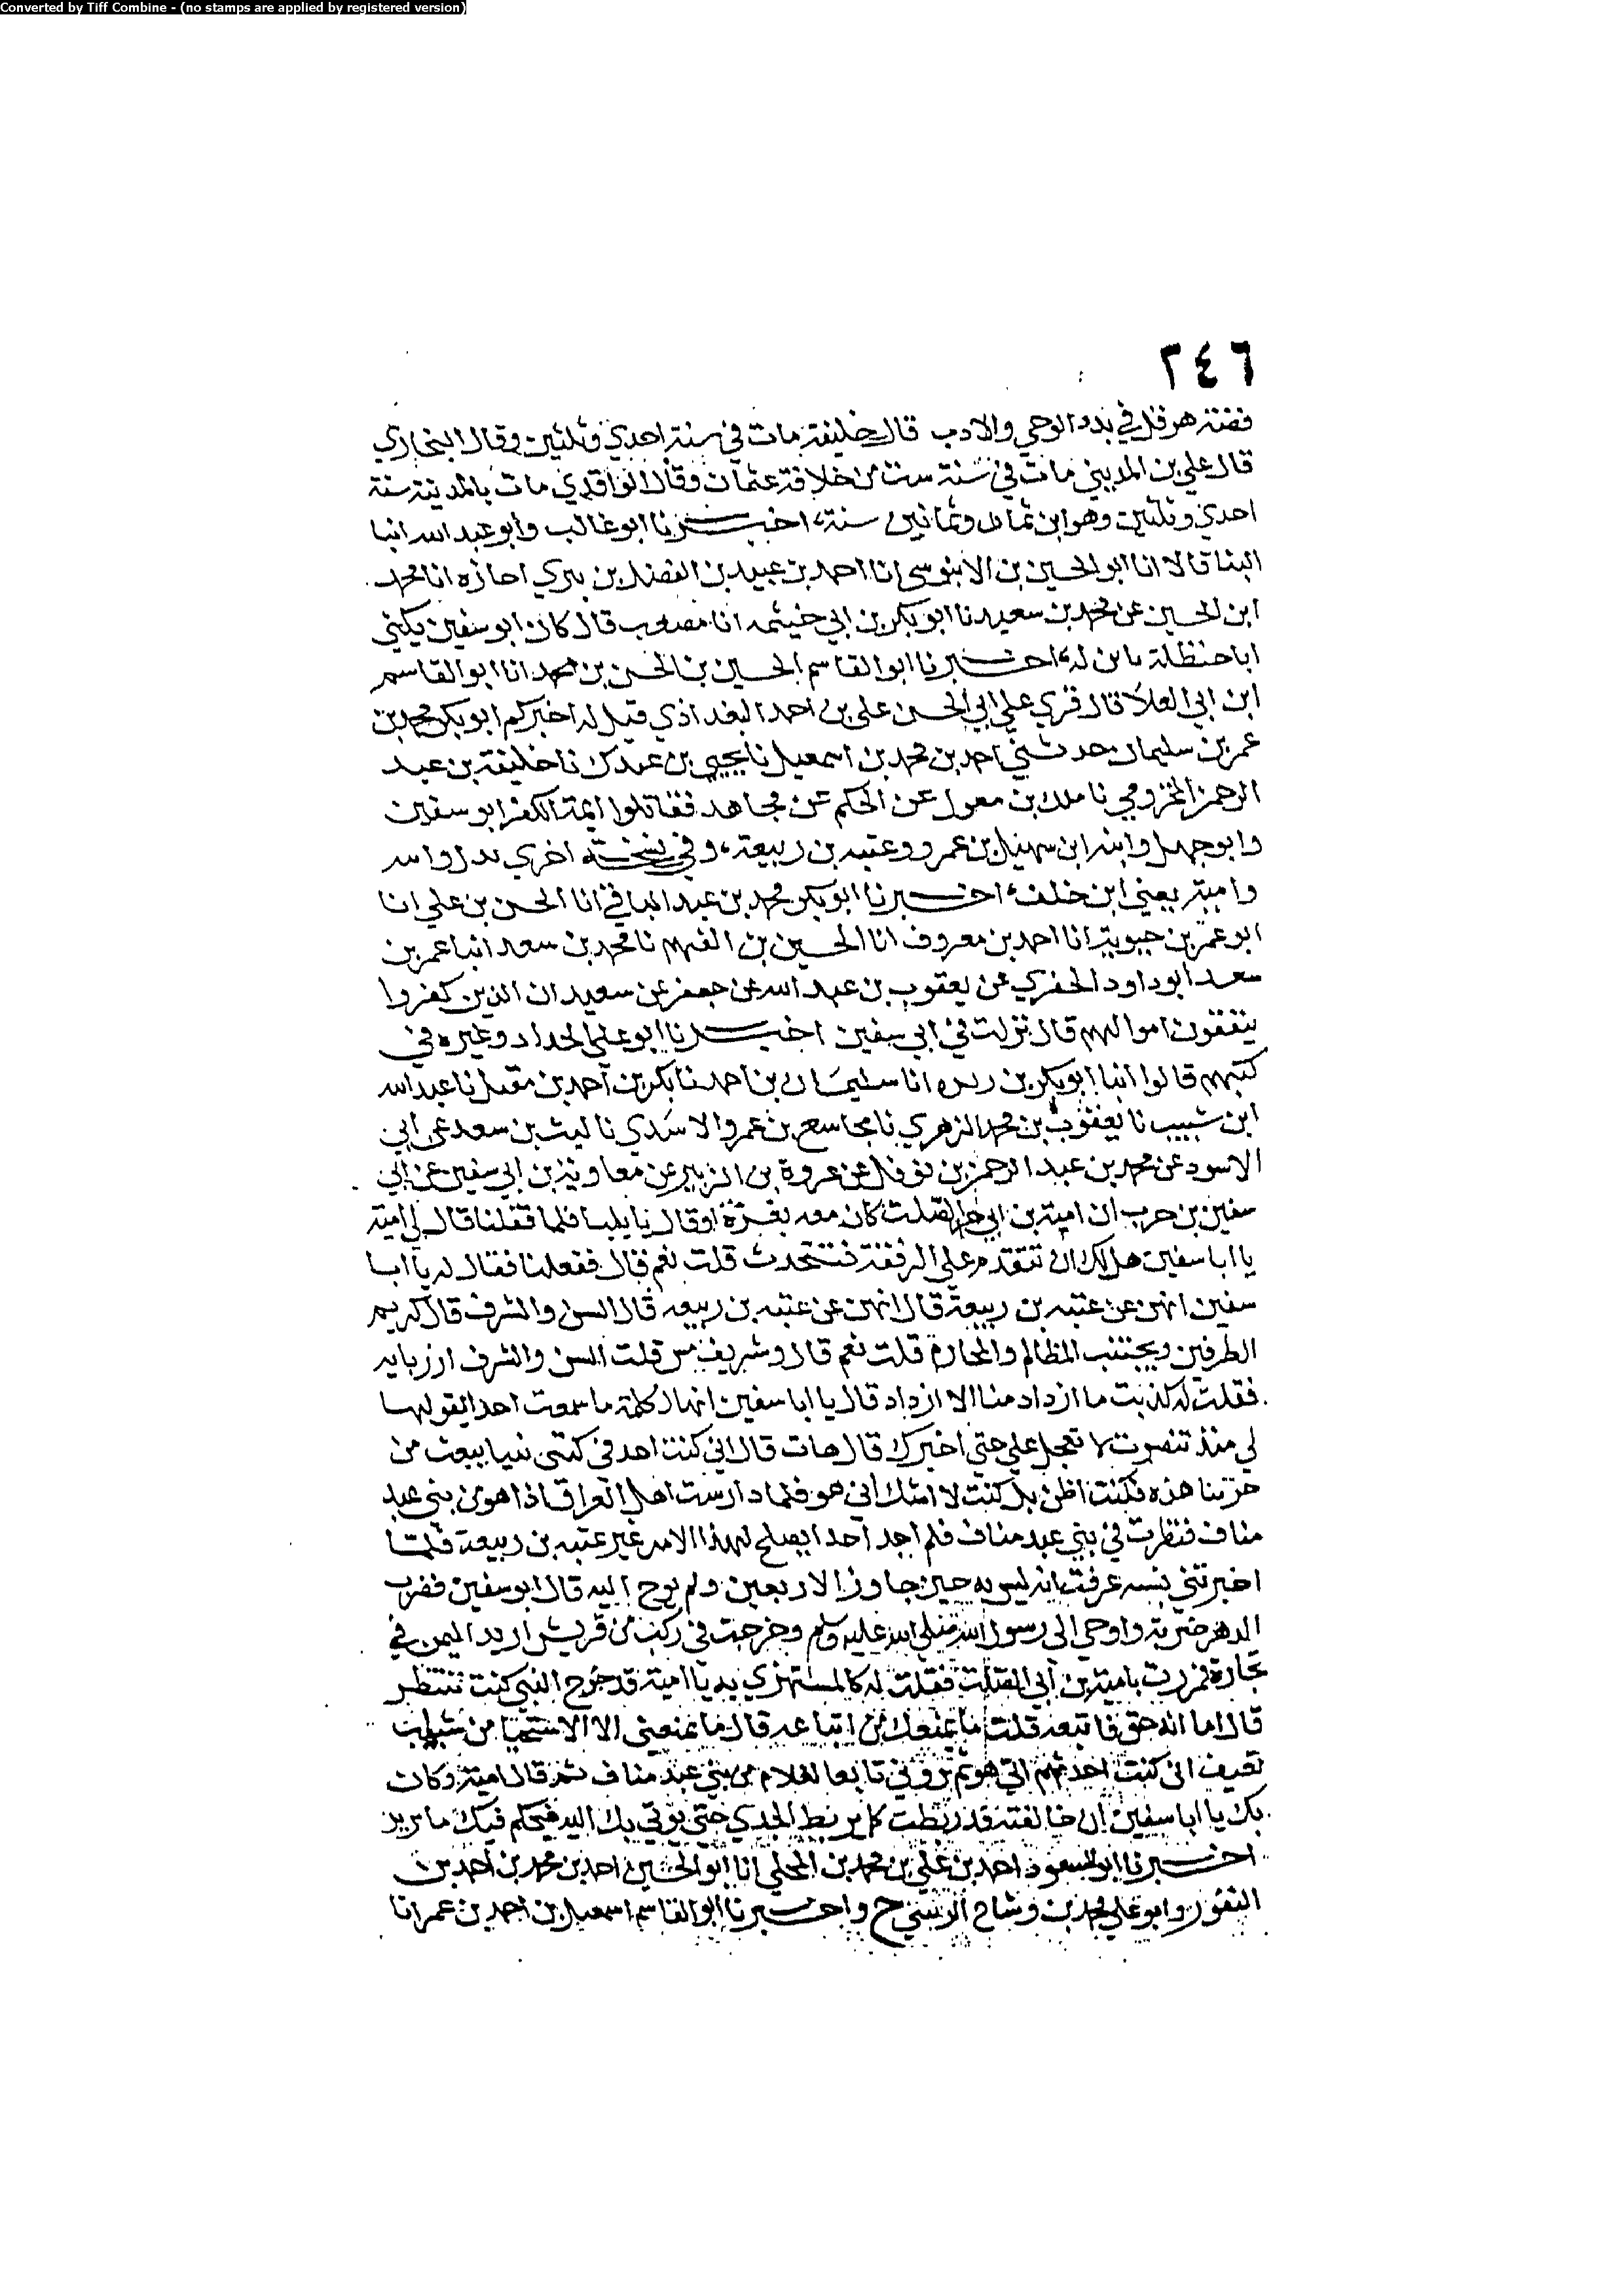 Converted by Tiff Combine - (no stamps are applied by registered version)
٢٤٦
قصة هرقل في بدء الوحي والادب قال خليفة مات في سنة احدي وثلثين وقال البخاري
قال علي بن المديني مات في سنة ست من خلافة عثمان وقال الواقدي مات بالمدينة سنة
احدي وثلثين وهو ابن ثمان وثمانين سنة اخبرنا ابو غالب وابو عبد الله ابنا
البنا قالا انا ابو الحسين بن الابنوسي انا احمد بن عبيد بن الفضل بن بيري اجازه انا محمد
ابن الحسين عن محمد بن سعيد نا ابو بكر بن ابي خيثمه انا مصعب قال كان ابو سفين يكني
ابا حنظلة بابن له اخبرنا ابو القاسم الحسين بن الحسن بن محمد انا ابو القاسم
ابن ابي العلا قال قري علي ابي الحسن علي بن احمد البغداذي قيل له اخبركم ابو بكر محمد بن
عمر بن سليمان حدثني احمد بن محمد بن اسمعيل نا يحيي بن عبدك نا خليفة بن عبد
الرحمن المخزومي نا ملك بن معول عن الحكم عن مجاهد فقاتلوا ايمة الكفر ابو سفين
وابو جهل وابنه ابن سهيل بن عمرو وعتبه بن ربيعة وفي نسخة اخري
وامية يعني ابن خلف اخبرنا ابو بكر محمد بن عبد الباقي انا الحسن بن علي انا
ابو عمر بن حيوية انا احمد بن معروف انا الحسين بن الفهم نا محمد بن سعد انبا عمر بن
سعد ابو داود الحفري عن يعقوب بن عبد الله عن جعفر عن سعيد ان الذين كفروا
ينفقون اموالهم قال نزلت في ابي سفين اخبرنا ابو علي الحداد وغيره في
كتبهم قالوا انبا ابو بكر بن ريده انا سليمان بن احمد نا بكر بن احمد بن مقبل نا عبد الله
ابن شبيب نا يعقوب بن محمد الزهري نا مجاسع بن عمرو الاسدي نا ليث بن سعد عن ابي
الاسود عن محمد بن عبد الرحمن بن نوفل عن عروة بن الزبير عن معاوية بن ابي سفين عن ابي
سفين بن حرب ان امية بن ابي الصلت كان معه بغزة او قال بايليا فلما قفلنا قال لي امية
يا ابا سفين هل لك ان تتقدم علي الرفقة فنتحدث قلت نعم قال ففعلنا فقال له يا ابا
سفين انهن عن عتبه بن ربيعة قال انهن عن عتبه بن ربيعه قال السن والشرف قال كريم
الطرفين ويجتنب المظالم والمحارم قلت نعم قال وشريف مس قلت السن والشرف ازربا به
فقلت له كذبت ما ازداد منا الا ازداد قال يا ابا سفين انها لكلمة ما سمعت احدا يقولها
لي منذ تنصرت لا تعجل علي حتي اخبرك قال هات قال اني كنت اجد في كتبي نبيا يبعث من
حرتنا هذه فكنت اظن بل كنت لا اشك اني هو فلما دارست اهل العراق اذا هو من بني عبد
مناف فنظرت في بني عبد مناف فلم اجد احدا يصلح لهذا الامر غير عتبه بن ربيعة فلما
اخبرتني بنسبه عرفت انه ليس به حين جاوز الاربعين ولم يوح اليه قال ابو سفين فضرب
الدهر ضربة واوحي الي رسول الله صلي الله عليه وسلم وخرجت في ركب من قريش اريد اليمن في
تجارة فمررت بامية بن ابي الصلت فقلت له كالمستهزي به يا امية قد خرج النبي كنت تنتظر
قال اما انه حق فاتبعه قلت ما يمنعك من اتباعه قال ما يمنعني الا الاستحيا من نسيات
ثقيف اني كنت احدثهم اني هو ثم يروني تابعا لغلام من بني عبد مناف ثم قال امية وكان
بك يا ابا سفين ان خالفته قد ربطت كما يربط الجدي حتي يوتي بك اليه فيحكم فيك ما يريد
اخبرنا ابو السعود احمد بن علي بن محمد بن المجلي انا ابو الحسين احمد بن محمد بن احمد بن
النقور وابو علي محمد بن وشاح الزينبي ح واخبرنا ابو القاسم اسمعيل بن احمد بن عمر انا